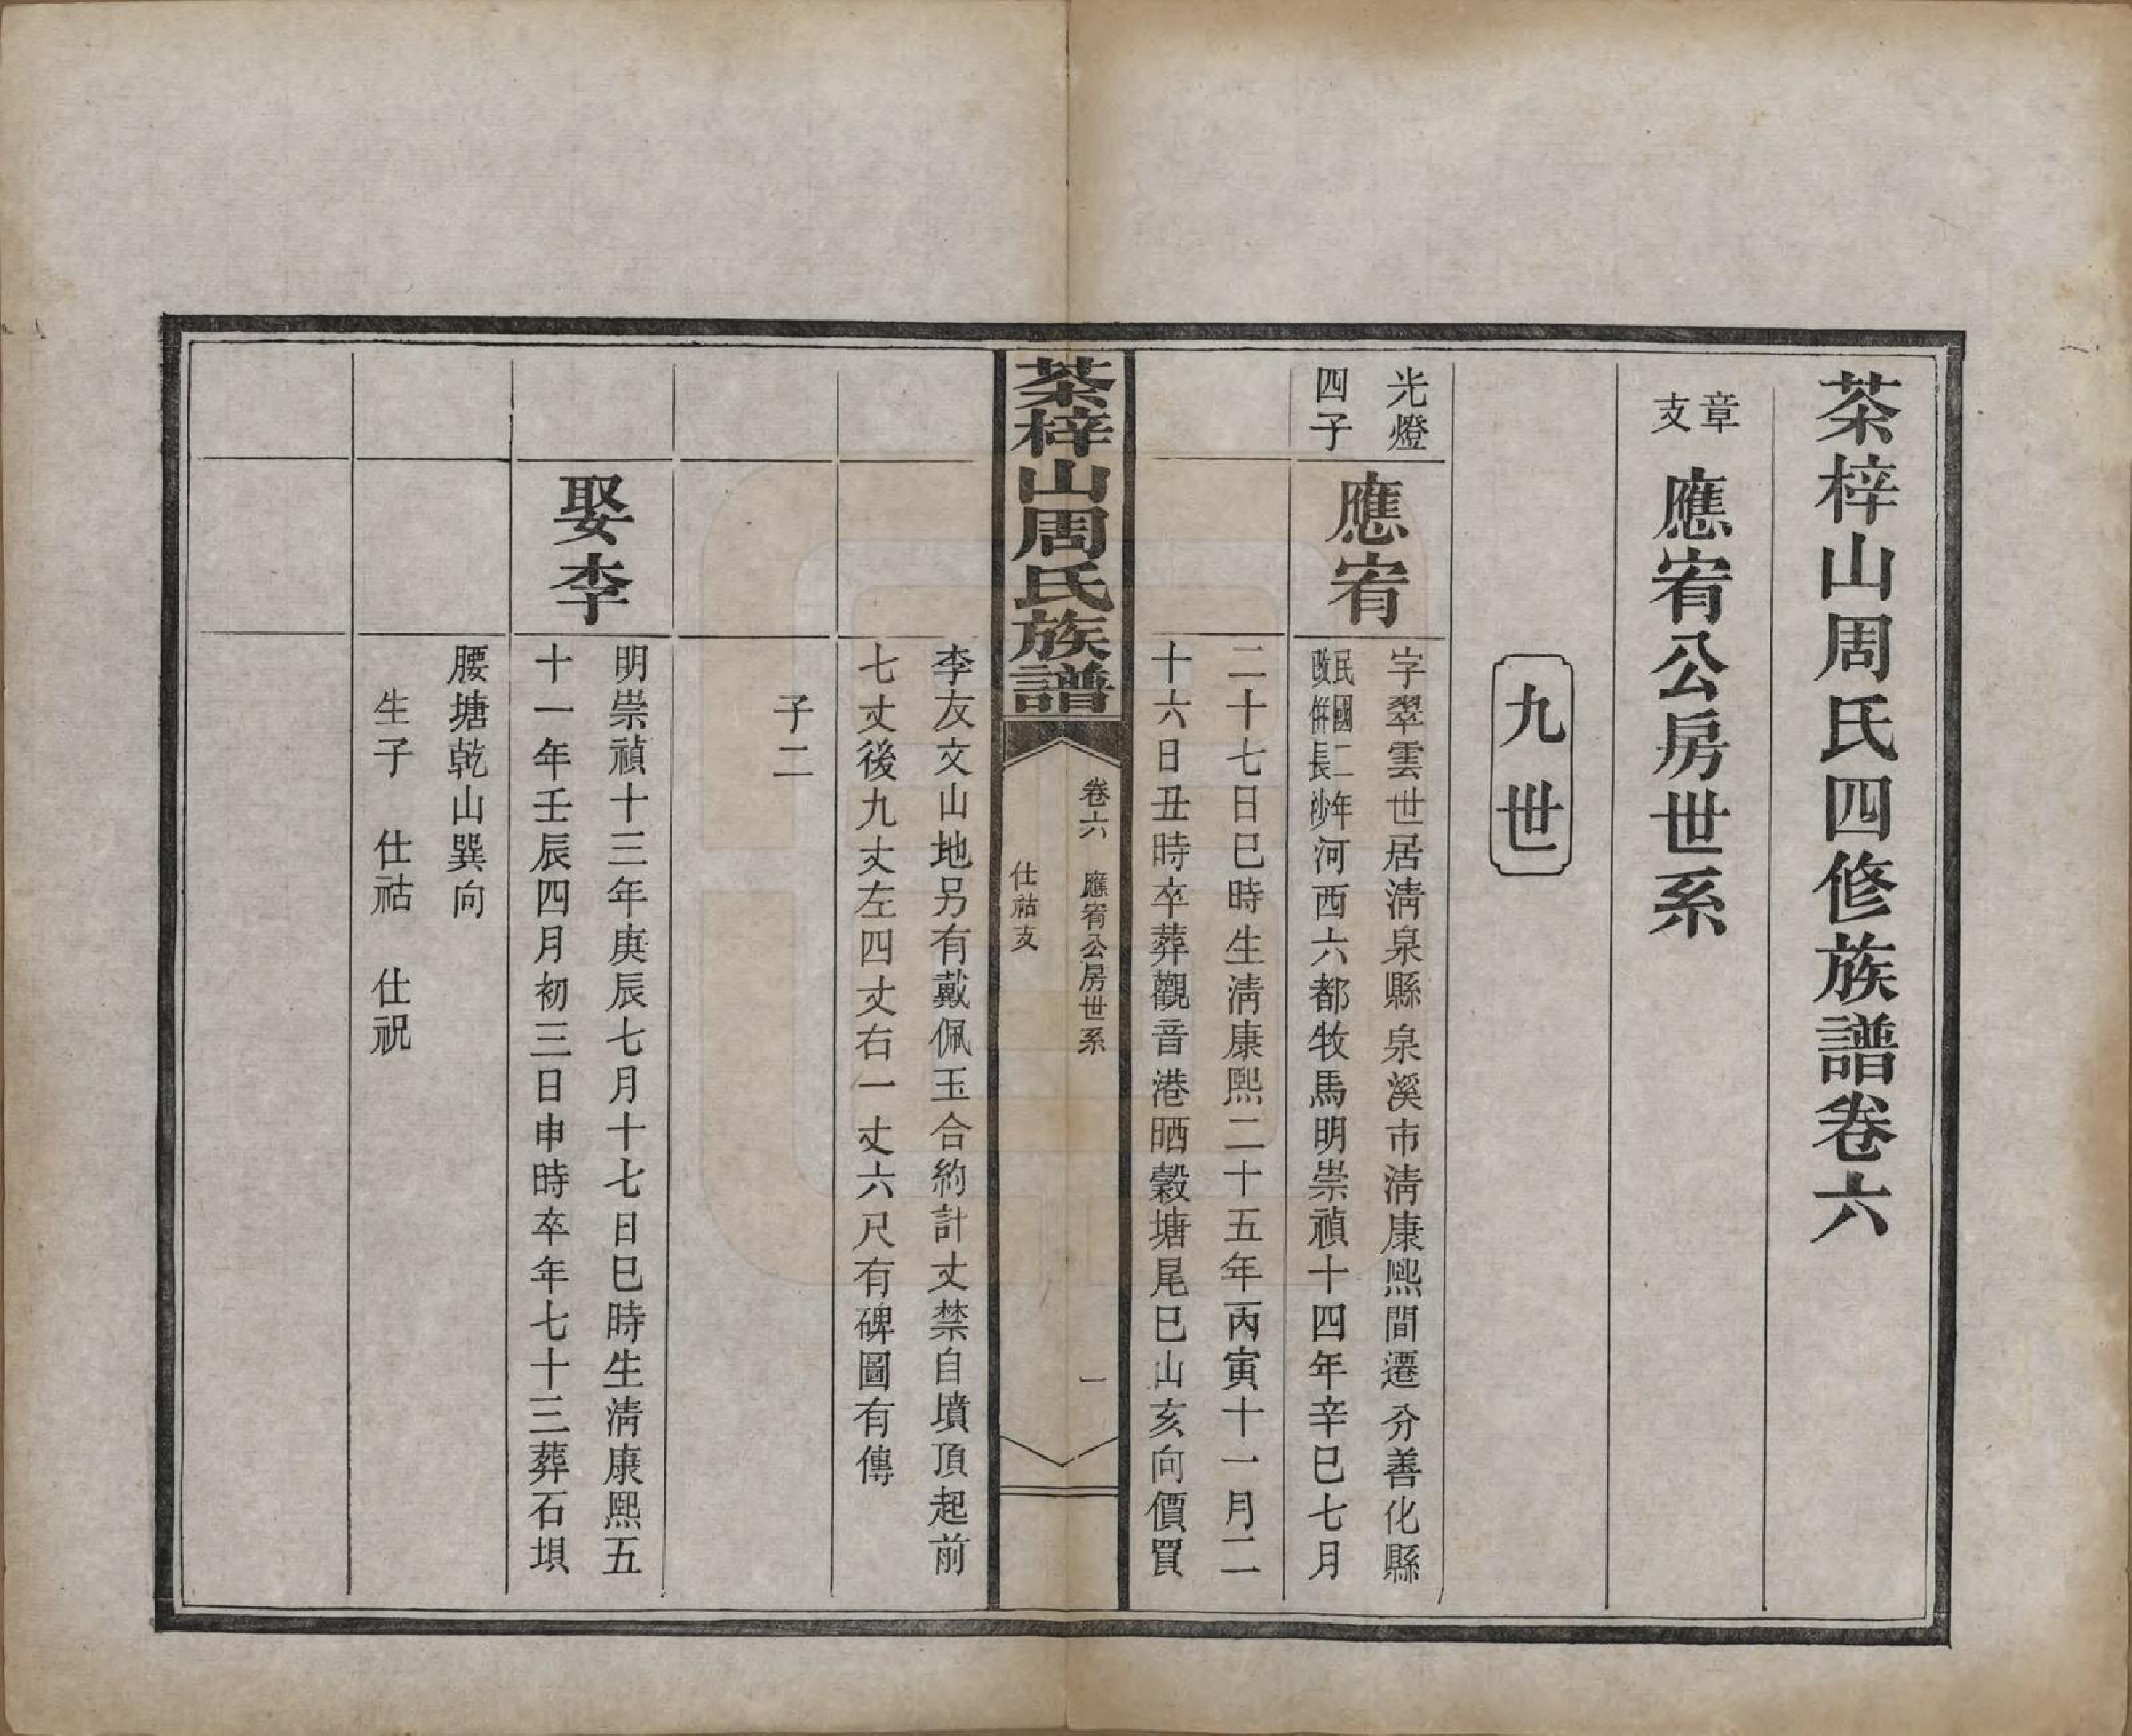 茶梓山周氏四修族譜卷六
章支 應宥公房世系
九世
光燈
四子
應宥
字翠雲世居淸泉縣泉溪市淸康熙間遷分善化縣
民國二年改併長沙河西六都牧馬明崇禎十四年辛巳七月
二十七日巳時生淸康熙二十五年丙寅十一月二
十六日丑時卒葬觀音港晒穀塘尾巳山亥向價買
茶梓山周氏族譜
卷六 應宥公房世系 一
仕祜支
李友文山地另有戴佩玉合約計丈禁自墳頂起前
七丈後九丈左四丈右一丈六尺有碑圖有傳
子二
娶李
明崇禎十三年庚辰七月十七日巳時生淸康熙五
十一年壬辰四月初三日申時卒年七十三葬石埧
腰塘乾山巽向
生子 仕祜 仕祝